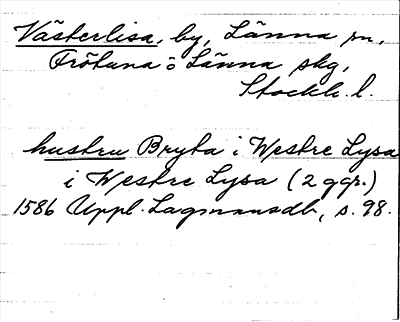 Västerlisa, by, Länna sn,
Frötuna o Länna skg,
Stockh. l.
hustru Bryta i Westre Lysa
i Westre Lysa (2 ggr.)
1586 Uppl. Lagmansdb, s. 98.